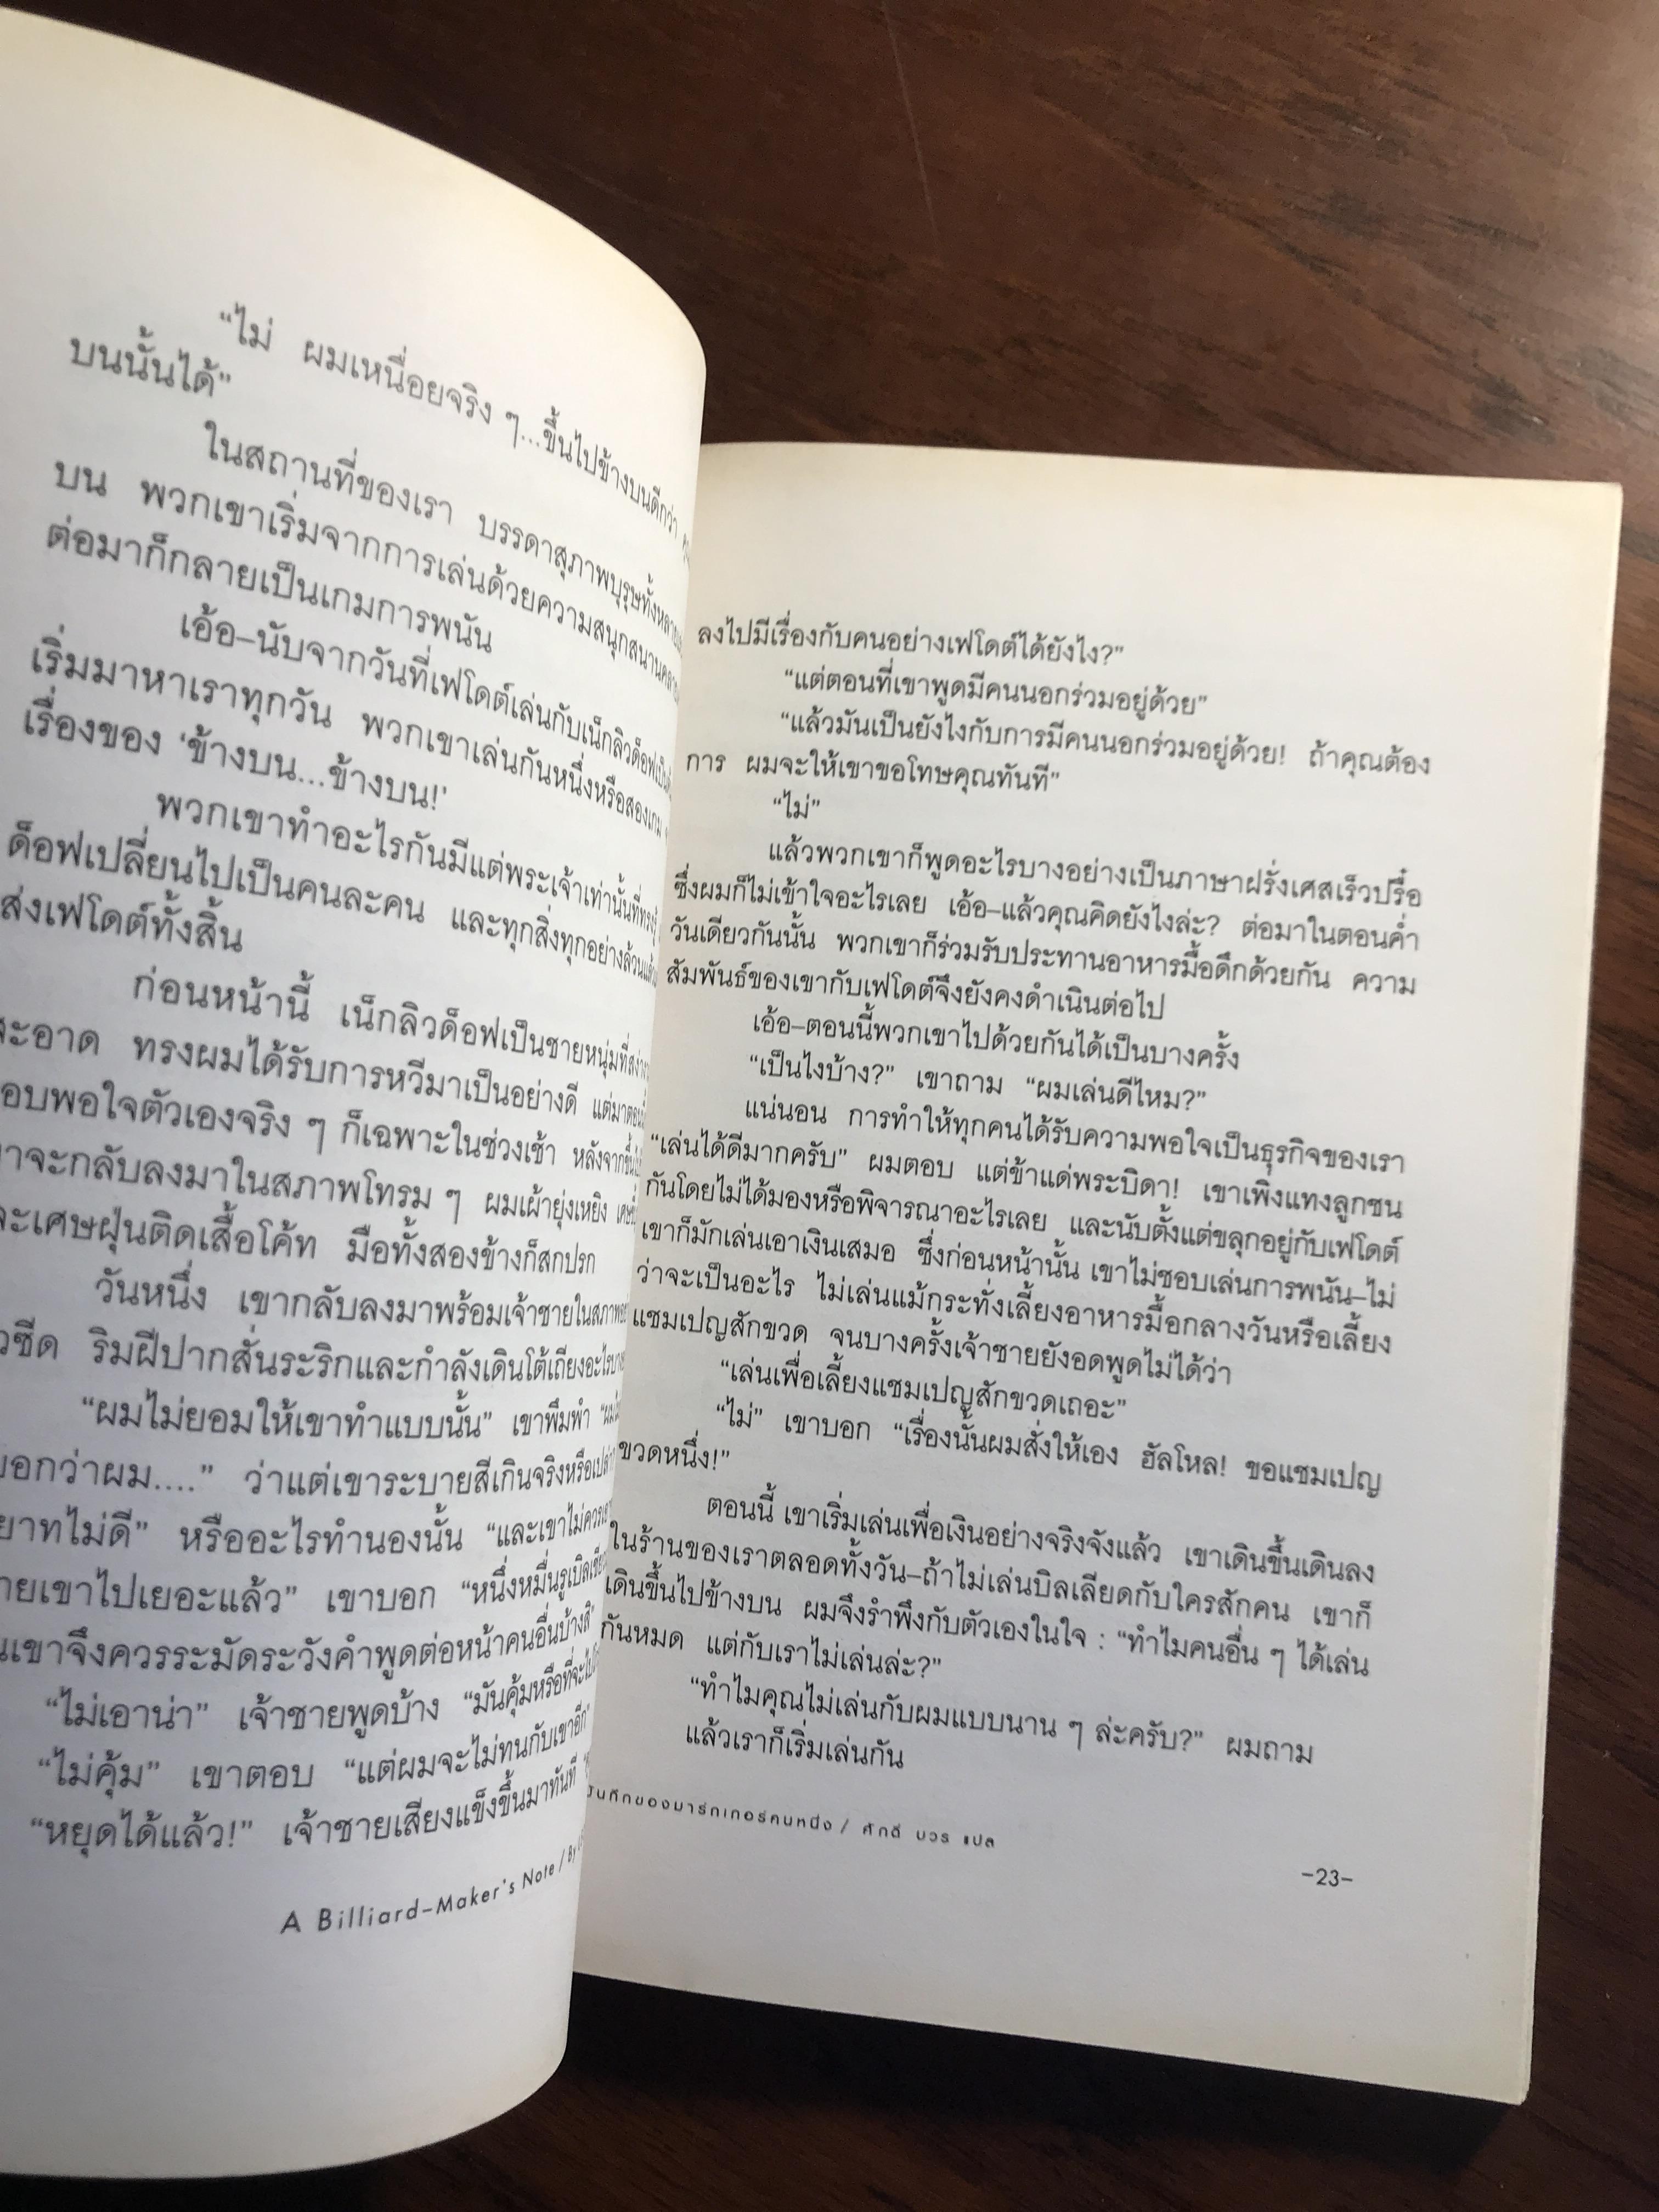 “ไม่ ผมเหนื่อยจริง ๆ...ขึ้นไปข้างบนดีกว่า
บนนั้นได้”
ในสถานที่ของเรา บรรดาสุภาพบุรุษทั้งหลาย
บน พวกเขาเริ่มจากการเล่นด้วยความสนุกสนาน
ต่อมาก็กลายเป็นเกมการพนัน
เอ้อ–นับจากวันที่เฟโดต์เล่นกับเน็กลิวด็อฟ
เริ่มมาหาเราทุกวัน พวกเขาเล่นกันหนึ่งหรือสองเกม
เรื่องของ ‘ข้างบน...ข้างบน!’
พวกเขาทำอะไรกันมีแต่พระเจ้าเท่านั้นที่ทรงรู้
ด็อฟเปลี่ยนไปเป็นคนละคน และทุกสิ่งทุกอย่างล้วน
ส่งเฟโดต์ทั้งสิ้น
ก่อนหน้านี้ เน็กลิวด็อฟเป็นชายหนุ่มที่
สะอาด ทรงผมได้รับการหวีมาเป็นอย่างดี
อบพอใจตัวเองจริง ๆ ก็เฉพาะในช่วงเช้า หลังจาก
าจะกลับลงมาในสภาพโทรม ๆ ผมเผ้ายุ่งเหยิง
ละเศษฝุ่นติดเสื้อโค้ท มือทั้งสองข้างก็สกปรก
วันหนึ่ง เขากลับลงมาพร้อมเจ้าชายในสภาพ
วซีด ริมฝีปากสั่นระริกและกำลังเดินโต้เถียงอะไร
“ผมไม่ยอมให้เขาทำแบบนั้น” เขาพึมพำ
บอกว่าผม....” ว่าแต่เขาระบายสีเกินจริงหรือ
ยาทไม่ดี” หรืออะไรทำนองนั้น “และเขาไม่ควร
ายเขาไปเยอะแล้ว” เขาบอก “หนึ่งหมื่นรูเบิล
นเขาจึงควรระมัดระวังคำพูดต่อหน้าคนอื่นบ้างสิ”
“ไม่เอาน่า” เจ้าชายพูดบ้าง “มันคุ้มหรือที่จะ
“ไม่คุ้ม” เขาตอบ “แต่ผมจะไม่ทนกับเขาอีก”
“หยุดได้แล้ว!” เจ้าชายเสียงแข็งขึ้นมาทันที
A Billiard–Maker’s Note / By
ลงไปมีเรื่องกับคนอย่างเฟโดต์ได้ยังไง?”
“แต่ตอนที่เขาพูดมีคนนอกร่วมอยู่ด้วย”
“แล้วมันเป็นยังไงกับการมีคนนอกร่วมอยู่ด้วย! ถ้าคุณต้อง
การ ผมจะให้เขาขอโทษคุณทันที”
“ไม่”
แล้วพวกเขาก็พูดอะไรบางอย่างเป็นภาษาฝรั่งเศสเร็วปรื๋อ
ซึ่งผมก็ไม่เข้าใจอะไรเลย เอ้อ–แล้วคุณคิดยังไงล่ะ? ต่อมาในตอนค่ำ
วันเดียวกันนั้น พวกเขาก็ร่วมรับประทานอาหารมื้อดึกด้วยกัน ความ
สัมพันธ์ของเขากับเฟโดต์จึงยังคงดำเนินต่อไป
เอ้อ–ตอนนี้พวกเขาไปด้วยกันได้เป็นบางครั้ง
“เป็นไงบ้าง?” เขาถาม “ผมเล่นดีไหม?”
แน่นอน การทำให้ทุกคนได้รับความพอใจเป็นธุรกิจของเรา
“เล่นได้ดีมากครับ” ผมตอบ แต่ข้าแด่พระบิดา! เขาเพิ่งแทงลูกชน
กันโดยไม่ได้มองหรือพิจารณาอะไรเลย และนับตั้งแต่ขลุกอยู่กับเฟโดต์
เขาก็มักเล่นเอาเงินเสมอ ซึ่งก่อนหน้านั้น เขาไม่ชอบเล่นการพนัน–ไม่
ว่าจะเป็นอะไร ไม่เล่นแม้กระทั่งเลี้ยงอาหารมื้อกลางวันหรือเลี้ยง
แชมเปญสักขวด จนบางครั้งเจ้าชายยังอดพูดไม่ได้ว่า
“เล่นเพื่อเลี้ยงแชมเปญสักขวดเถอะ”
“ไม่” เขาบอก “เรื่องนั้นผมสั่งให้เอง ฮัลโหล! ขอแชมเปญ
ขวดหนึ่ง!”
ตอนนี้ เขาเริ่มเล่นเพื่อเงินอย่างจริงจังแล้ว เขาเดินขึ้นเดินลง
ในร้านของเราตลอดทั้งวัน–ถ้าไม่เล่นบิลเลียดกับใครสักคน เขาก็
เดินขึ้นไปข้างบน ผมจึงรำพึงกับตัวเองในใจ : “ทำไมคนอื่น ๆ ได้เล่น
กันหมด แต่กับเราไม่เล่นล่ะ?”
“ทำไมคุณไม่เล่นกับผมแบบนาน ๆ ล่ะครับ?” ผมถาม
แล้วเราก็เริ่มเล่นกัน
บันทึกของมาร์กเกอร์คนหนึ่ง / ศักดิ์ บวร แปล
–23–